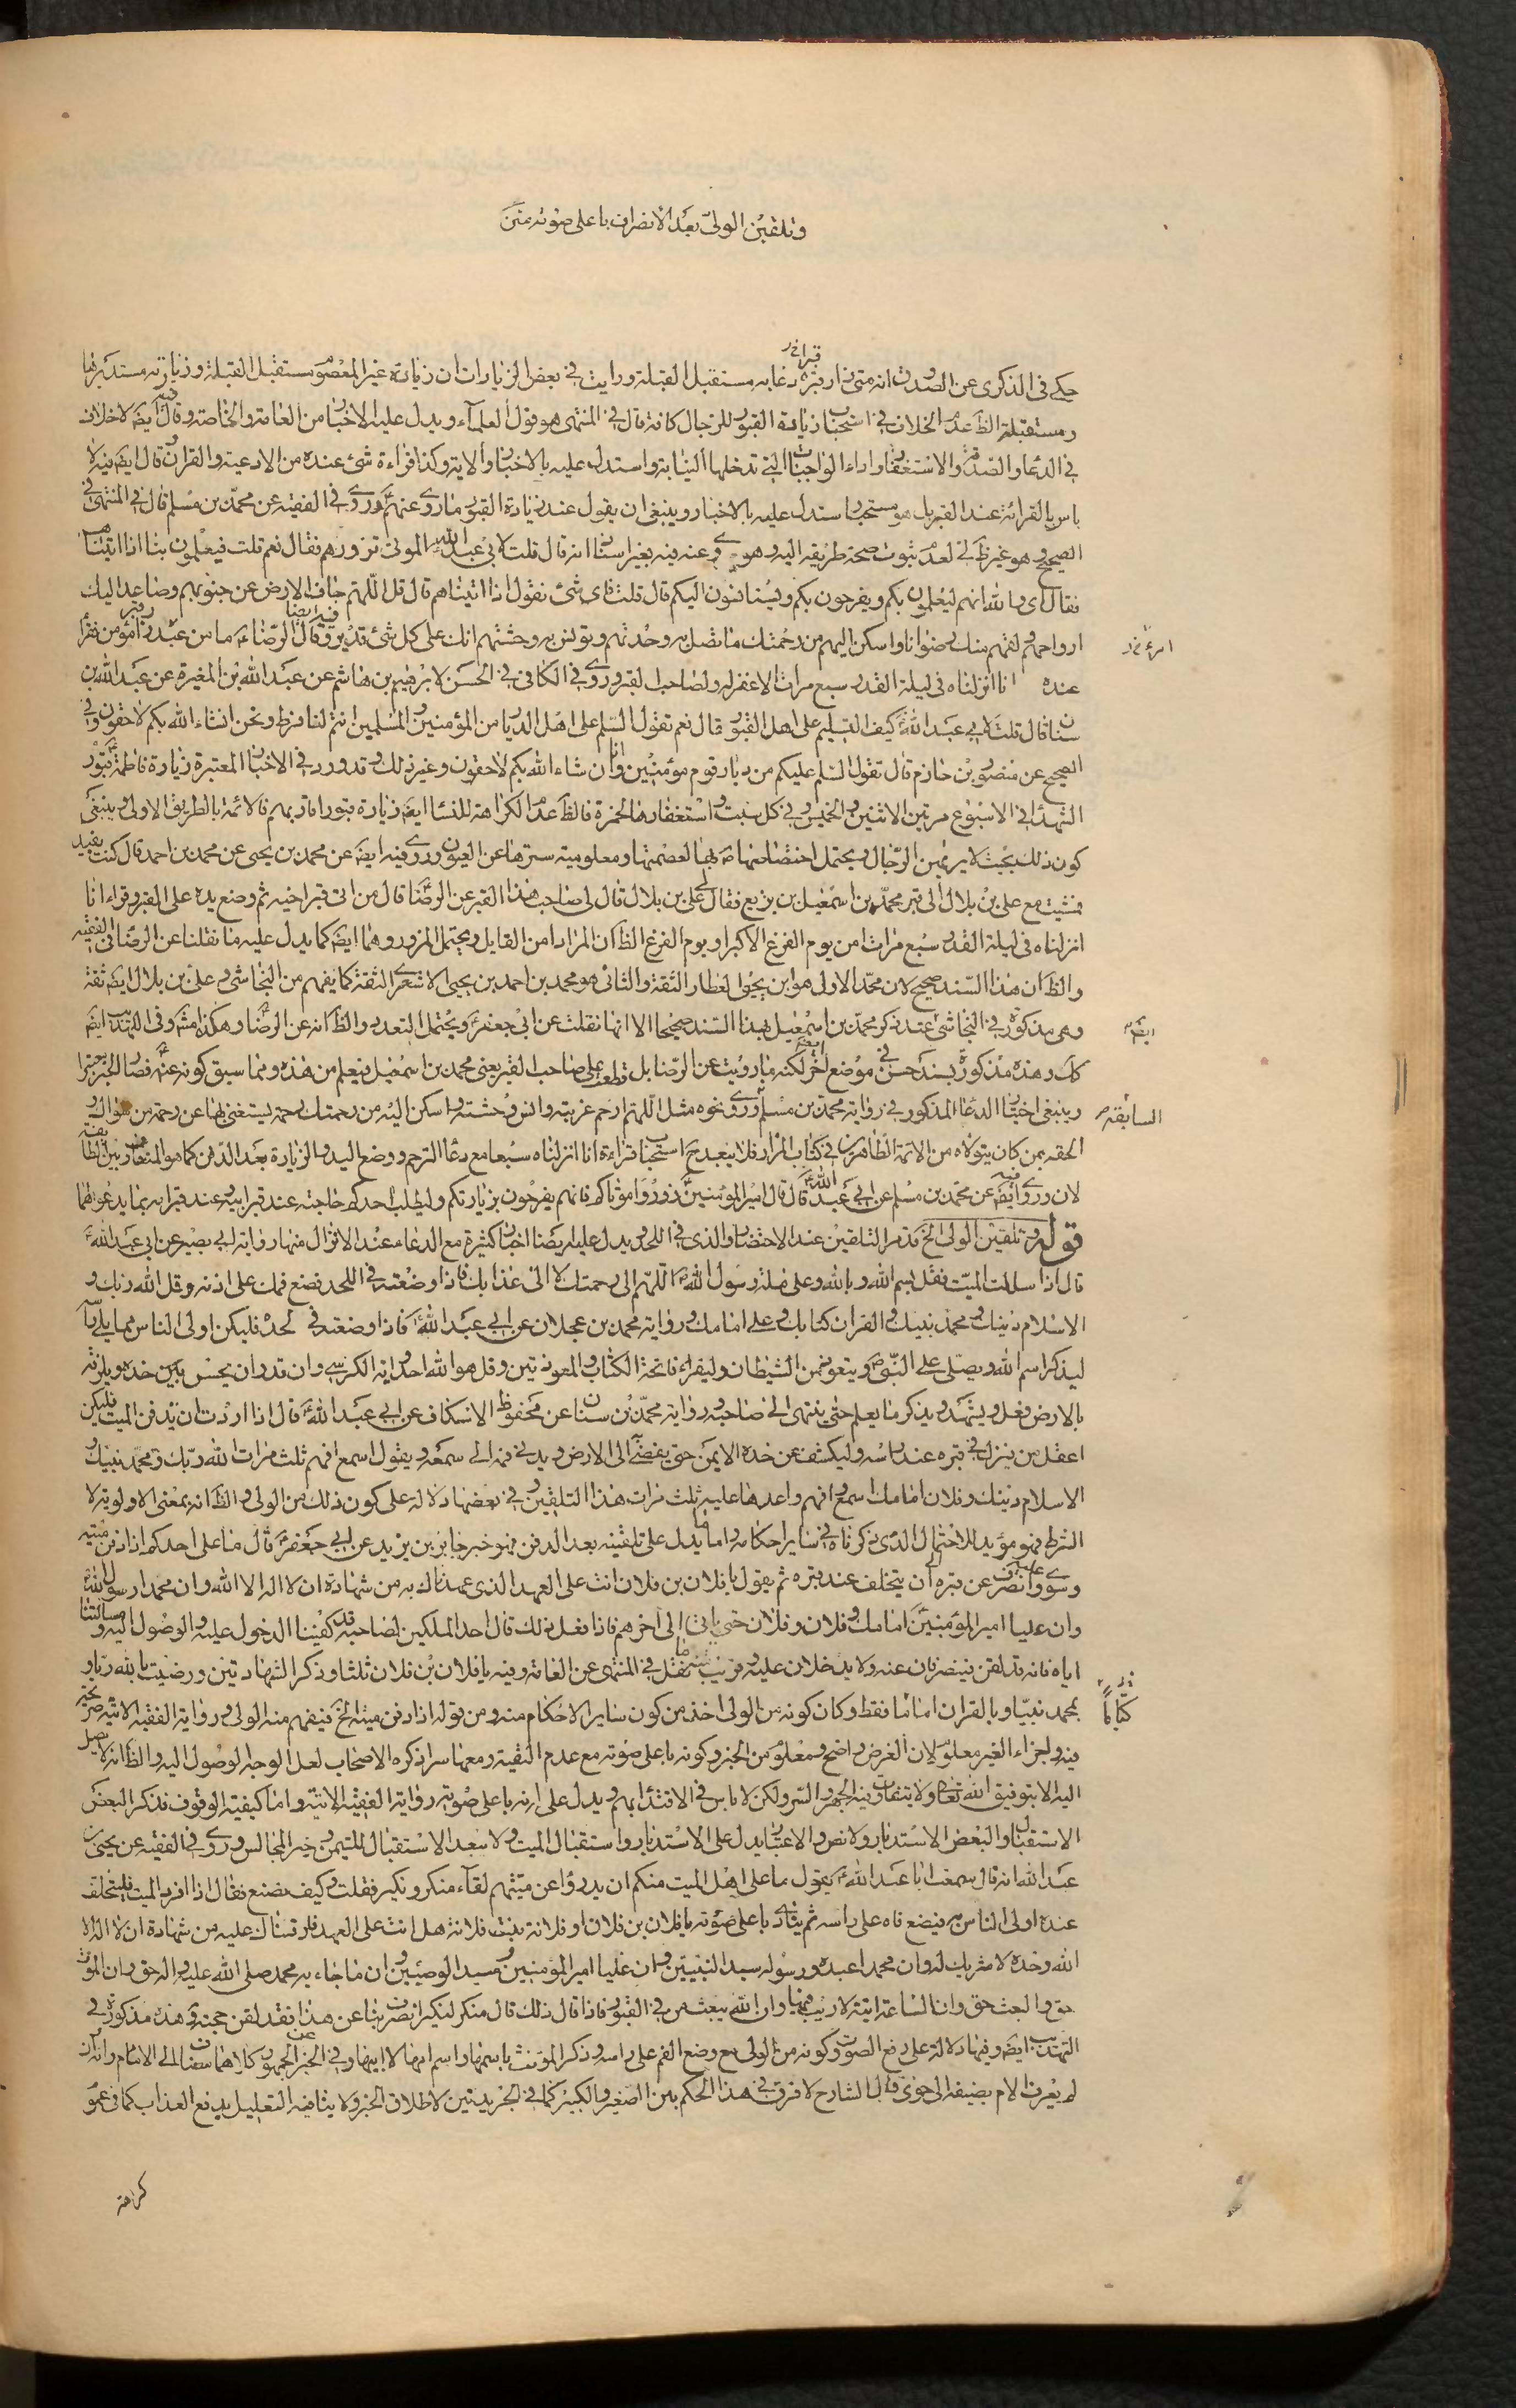 وتلقين الولي بعد الانصراف باعلى صوته
حكى في الذكرى عن الصدوق انه متى زار قبره دعا به مستقبل القبلة ورايت في بعض الزيارات ان زيارة غير المعصوم مستقبل القبلة وزيارته مستدبرها
ومستقبله الظ عدم الخلاف في استحباب زيارة القبور للرجال كافة قال في المنتهى هو قول العلماء ويدل عليه الاخبار من العامة والخاصة وقال فيه ايضه لا خلاف
في الدعاء والصدقة والاستغفار واداء الواجبات التي تدخلها النيابة واستدل عليه بالاخبار والاية وكذا قراءة شئ عنده من الادعية والقران قال ايضه فيه لا
باس بالقراءة عند القبر بل هو مستحب استدل عليه بالاخبار وينبغى ان يقول عند زيارة القبور ما روى عنهم وروى في الفقيه عن محمد بن مسلم قال في المنتهى في
الصحيح وهو غير ظ لى لعدم ثبوت صحة طريقه اليه وهو وعنه فيه بغير اسناد انه قال قلت لابى عبد الله الموتى نزورهم فقال نعم قلت فيعلمون بنا اذا اتيناهم
فقال اى والله انهم ليعلمون بكم ويفرحون بكم ويستانسون اليكم قال قلت فاى شئ نقول اذا اتيناهم قال قل اللهم جاف الارض عن جنوبهم وصاعد اليك
ارواحهم ولقهم منك رضوانا واسكن اليهم من رحمتك ما تصل به وحدتهم وتونس به وحشتهم انك على كل شئ قدير وفيه ايضا وقال الرضا ما من عبد زار قبر مؤمن فقرأ
عنده انا انزلناه في ليلة القدر سبع مرات الا غفر له ولصاحب القبر وروى في الكافي في الحسن لابرهيم بن هاشم عن عبد الله بن المغيرة عن عبد الله بن
سنان قال قلت لابي عبد الله كيف التسليم على اهل القبور قال نعم تقول السلم على اهل الديار من المؤمنين والمسلمين انتم لنا فرط ونحن انشاء الله بكم لاحقون وفي
الصحيح عن منصور بن حازم قال تقول السلم عليكم من ديار قوم مؤمنين وانا ان شاء الله بكم لاحقون وغير ذلك وقد ورد في الاخبار المعتبرة زيارة فاطمة قبور
الشهداء في الاسبوع مرتين الاثنين والخميس في كل سبت واستغفارها لحمزة فالظ عدم الكراهة للنساء ايضه زيارة قبور اقاربهم فالائمة بالطريق الاولى وينبغى
كون ذلك بحيث لا يريهن الرجال ويحتمل اختصاصها بها لعصمتها ومعلومية سترها عن العيون وروى فيه ايضه عن محمد بن يحيى عن محمد بن احمد قال كنت بفيد
فمشيت مع على بن بلال الى قبر محمد بن اسمعيل بن بزيع فقال لى على بن بلال قال لى صاحب هذا القبر عن الرضا قال من اتى قبر اخيه ثم وضع يده على القبر وقراء انا
انزلناه في ليلة القدر سبع مرات امن يوم الفزع الاكبر او يوم الفزع الظ ان المراد امن القايل ويحتمل المزور وهما ايضه كما يدل عليه ما نقلنا عن الرضا في الفقيه
والظ ان هذا السند صحيح لان محمد الاول هو ابن يحيى العطار الثقة والثاني هو محمد بن احمد بن يحيى الاشعرى الثقة كما يفهم من النجاشي وعلى بن بلال ايضه ثقة
وهى مذكورة في النجاشي عند ذكر محمد بن اسمعيل بهذا السند صحيحا الا انها نقلت عن ابي جعفر ويحتمل التعدد والظ انه عن الرضا وهكذا وفي التهذيب ايضه
كك وهذه مذكورة بسند حسن في موضع اخر لكنه ما رويت عن الرضا بل على صاحب القبر يعنى محمد بن اسمعيل فيعلم من هذه ومما سبق كونه عنه فصار الخبر معتبرا
وينبغى اختيار الدعاء المذكور في رواية محمد بن مسلم وروى نحوه مثل اللهم ارحم غربته وانس وحشته واسكن اليه من رحمتك رحمة يستغنى بها عن رحمة من سواك و
الحقه بمن كان يتولاه من الائمة الطاهرين في كتاب المزار فلا يبعد ح استحباب قراءة انا انزلناه سبعا مع دعاء الترحم ووضع اليد والزيارة بعد الدفن كما هو المتعارف بين الطائفة
لان وروى فيه ايضه عن محمد بن مسلم عن ابي عبد الله قال قال امير المؤمنين زوروا موتاكم فانهم يفرحون بزيارتكم وليطلب احدكم حاجته عند قبر ابيه وعند قبر امه بما يدعو لهما
قوله وتلقين الولى الخ قد مر التلقين عند الاحتضار والذى في اللحد ويدل عليه ايضا اخبار كثيرة مع الدعاء عند الانزال منها رواية ابي بصير عن ابي عبد الله
قال اذا سللت الميت فقل بسم الله وبالله وعلى ملة رسول الله اللهم الى رحمتك لا الى عذابك فاذا وضعته في اللحد فضع فمك على اذنه وقل الله ربك و
الاسلام دينك ومحمد نبيك والقران كتابك وعلى امامك ورواية محمد بن عجلان عن ابي عبد الله فاذا وضعته في لحده فليكن اولى الناس مما يلى راسه
ليذكر اسم الله ويصلى على النبى ويتعوذ من الشيطان وليقراء فاتحة الكتاب والمعوذتين وقل هو الله احد واية الكرسى وان قدر ان يحسر عن خده ويلزقه
بالارض فعل ويتشهد ويذكر ما يعلم حتى ينتهى الى صاحبه ورواية محمد بن سنان عن محفوظ الاسكاف عن ابي عبد الله قال اذا اردت ان تدفن الميت فليكن
اعقل من ينزل في قبره عند راسه وليكشف عن خده الايمن حتى يفضى الى الارض ويدنى فمه الى سمعه ويقول اسمع افهم ثلث مرات الله ربك ومحمد نبيك و
الاسلام دينك وفلان امامك اسمع وافهم واعدها عليه ثلث مرات هذا التلقين وفي بعضها دلالة على كون ذلك من الولى والظ انه بمعنى الاولوية لا
الشرط فهو مؤيد للاحتمال الذى ذكرناه في ساير احكامه واما ما يدل على تلقينه بعد الدفن فهو خبر جابر بن يزيد عن ابي جعفر قال ما على احدكم اذا دفن ميته
وسوى عليه وانصرف عن قبره ان يتخلف عند قبره ثم يقول يا فلان بن فلان انت على العهد الذى عهدناك به من شهادة ان لا اله الا الله وان محمدا رسول الله
وان عليا امير المؤمنين امامك وفلان وفلان حتى ياتى الى اخرهم فاذا فعل ذلك قال احد الملكين لصاحبه قد كفينا الدخول عليه والوصول اليه ومسالتنا
اياه فانه قد لقن فينصرفان عنه ولا يدخلان عليه وقريب منه ما نقل في المنتهى عن العامة وفيه يا فلان بن فلان ثلثا وذكر الشهادتين ورضيت بالله ربا و
بمحمد نبيا وبالقران اماما فقط وكان كونه من الولى اخذ من كون ساير الاحكام منه ومن قوله اذا دفن ميته الخ فيفهم منه الولى ورواية الفقيه الاتية صريحة
فيه واجزاء الغير معلوم لان الغرض واضح ومعلوم من الخبر وكونه باعلى صوته مع عدم التقية ومعها سرا ذكره الاصحاب لعل الوجه الوصول اليه والظ انه لا يصل
اليه الا بتوفيق الله تعالى ولا يتفاوت فيه الجهر والسر ولكن لا باس في الاقتداء بهم ويدل على انه باعلى صوته رواية الفقيه الاتية واما كيفية الوقوف فذكر البعض
الاستقبال والبعض الاستدبار ولا نص والاعتبار يدل على الاستدبار واستقبال الميت ولا يبعد الاستقبال للتيمن وخير المجالس وروى في الفقيه عن يحيى بن
عبد الله انه قال سمعت ابا عبد الله يقول ما على اهل الميت منكم ان يدرؤا عن ميتهم لقاء منكر ونكير فقلت وكيف يصنع فقال اذا افرد الميت فليتخلف
عنده اولى الناس به فيضع فاه على راسه ثم ينادى باعلى صوته يا فلان بن فلان او فلانة بنت فلانة هل انت على العهد الذى فارقناك عليه من شهادة ان لا اله الا
الله وحده لا شريك له وان محمدا عبده ورسوله سيد النبيين وان عليا امير المؤمنين وسيد الوصيين وان ما جاء به محمد صلى الله عليه واله حق وان الموت
حق والبعث حق وان الساعة اتية لا ريب فيها وان الله يبعث من في القبور فاذا قال ذلك قال منكر لنكير انصرف بنا عن هذا فقد لقن حجته وهذه مذكورة في
التهذيب ايضه وفيها دلالة على رفع الصوت وكونه من الولى مع وضع الفم على راسه وذكر المؤنث باسمها واسم امها لا ابيها وفي الخبر عن الجمهور كلاهما سضا الى الام وانه ان
لم يعرف الام يضيفه الى حوى قال الشارح لا فرق في هذا الحكم بين الصغير والكبير كما في الجريدتين لاطلاق الخبر ولا ينافيه التعليل بدفع العذاب كما في عموم
كراهة
ايضه
السابقة
كتابا